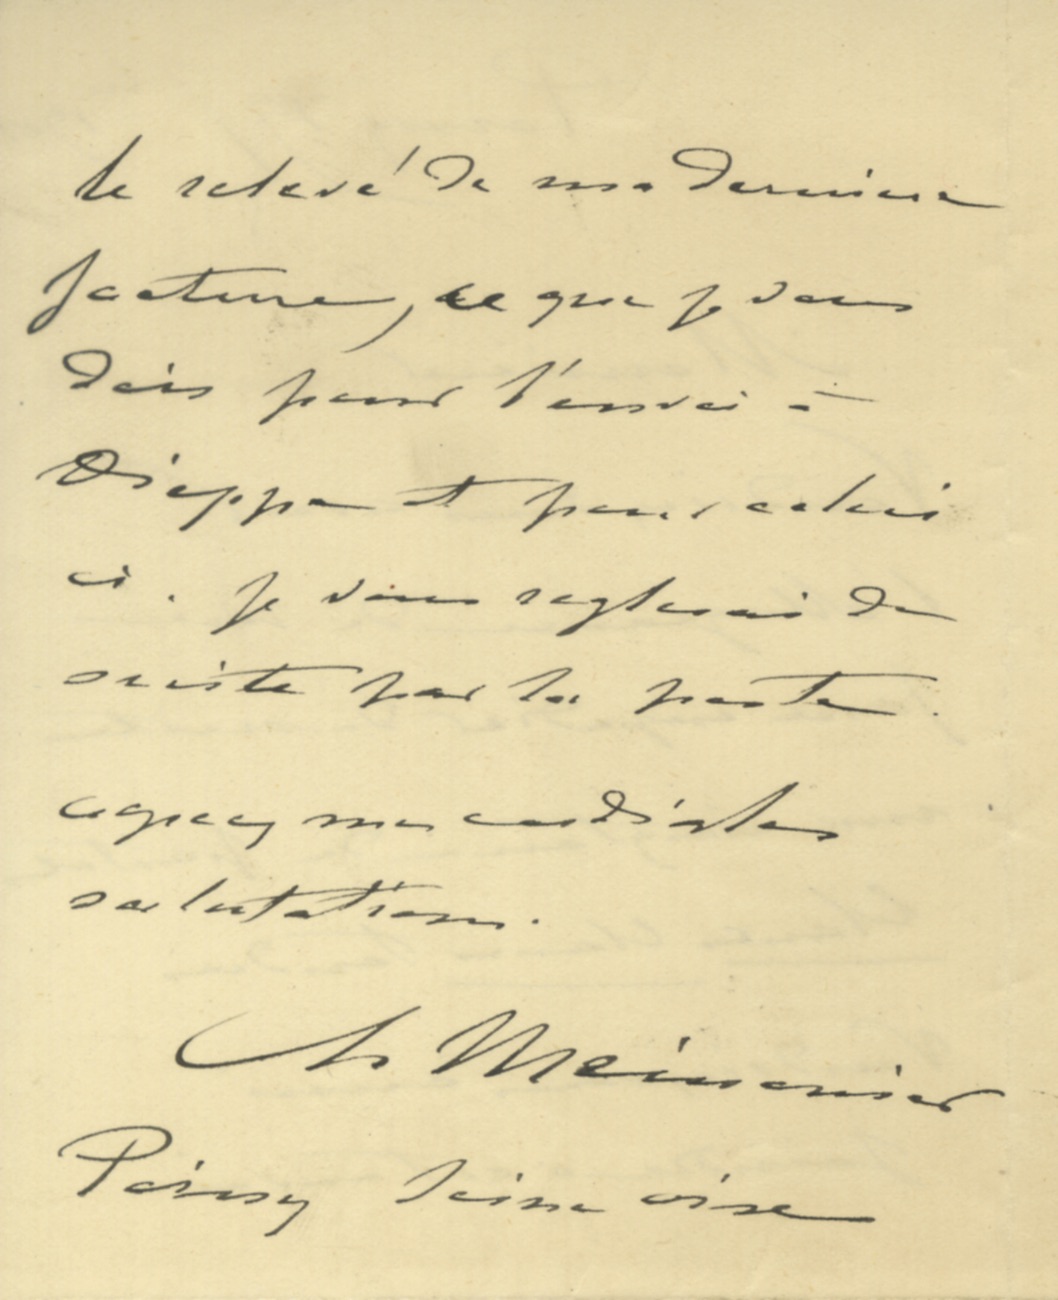 le relevé de ma derniere
facture, ce que je vous
dois pour l'envoi à
Dieppe et pour celui
ci. je vous reglerai de
suite par la poste.
agreez mes cordiales
salutations.
Ch Meissonier
Poissy Seine oise